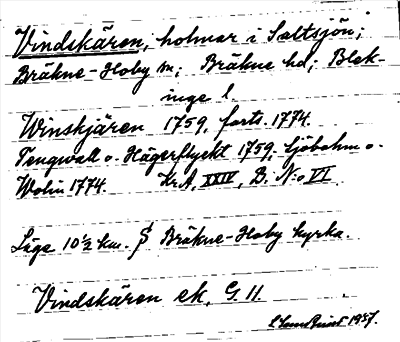 Vindskären, holmar i Saltsjön;
Bräkne-Hoby sn; Bräkne hd; Blek-
inge l.
Winskjären 1759, forts. 1774.
Tengwall o. Hägerflyckt 1759, Sjöbohm o.
Wolin 1774. Kr.A, XXIV, B. No VI.
Läge 10½ km. S Bräkne-Hoby kyrka.
Vindskären ek. G. 11.
1957.